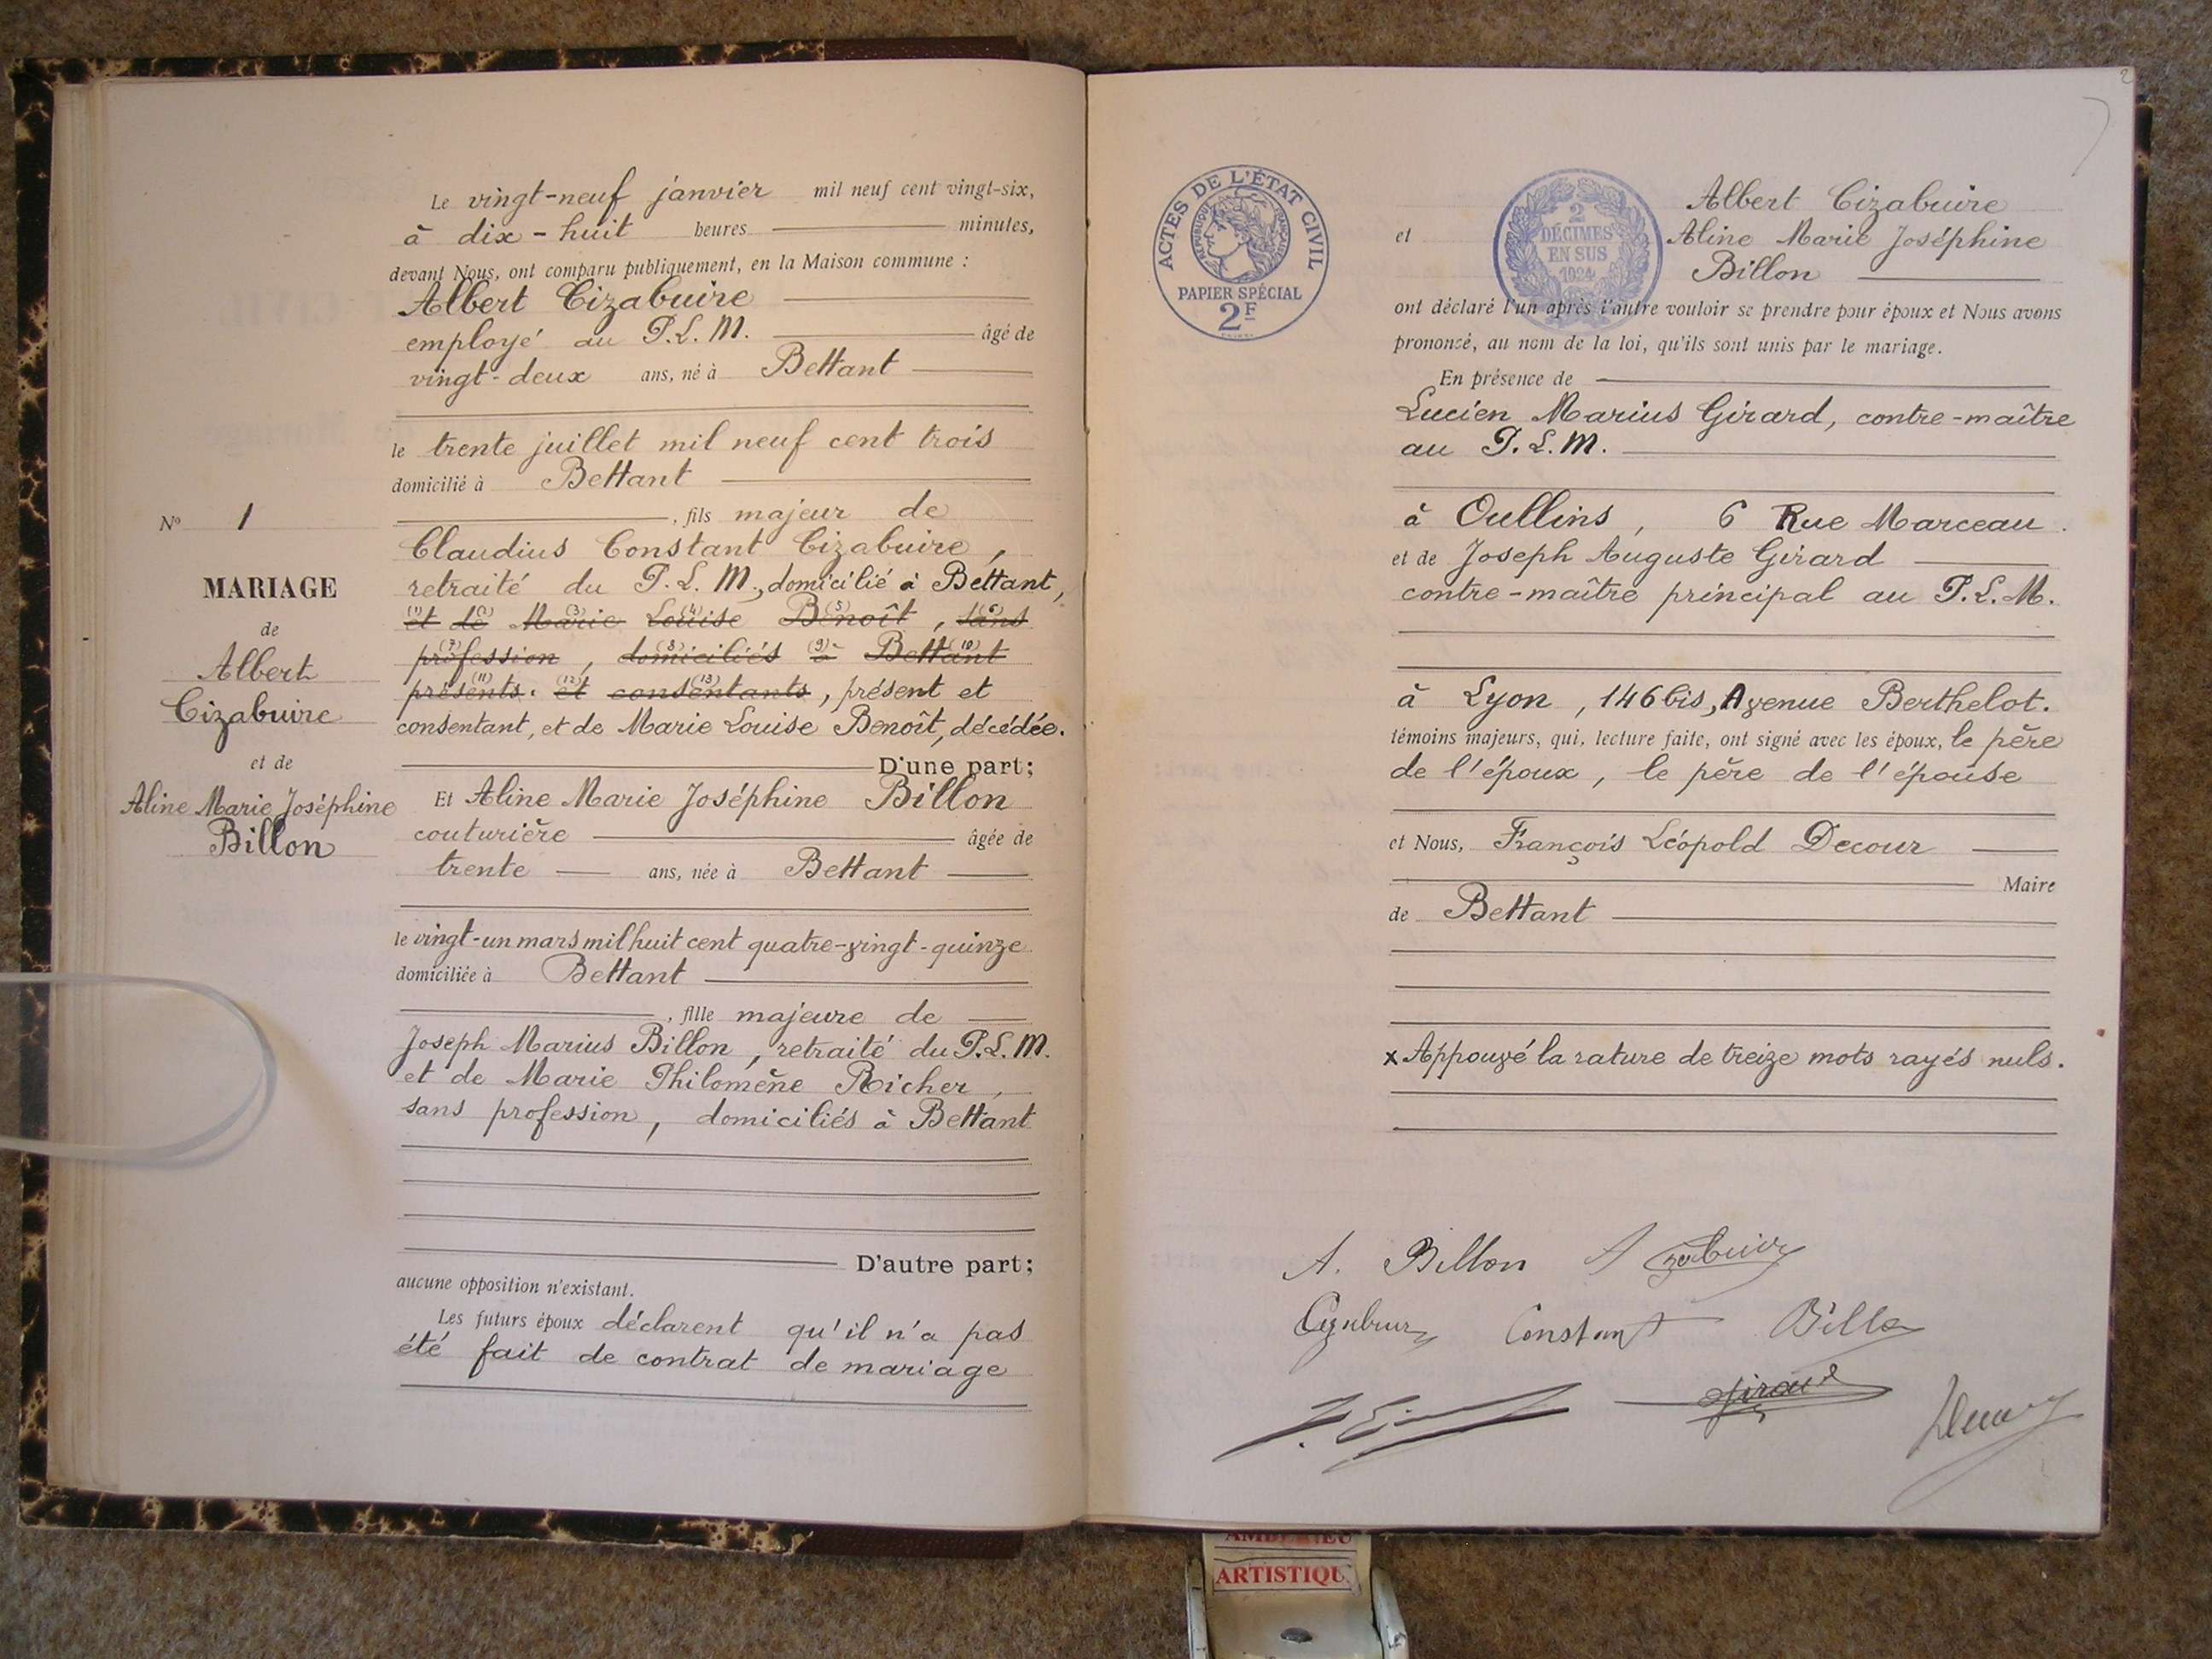 Le vingt-neuf janvier mil neuf cent vingt-six,
à dix-huit heures minutes,
devant Nous, ont comparu publiquement, en la Maison commune :
Albert Cizabuire
employé au P.L.M. âgé de
vingt-deux ans, né à Bettant
le trente juillet mil neuf cent trois
domicilié à Bettant
, fils majeur de
Claudius Constant Cizabuire,
retraité du P.L.M., domicilié à Bettant,
(1) et (2) de (3) Marie (4) Louise (5) Benoît, (6) sans
(7) profession, (8) domiciliés (9) à (10) Bettant
(11) présents. (12) et (13) consentants, présent et
consentant, et de Marie Louise Benoît, décédée.
D'une part;
Et Aline Marie Joséphine Billon
couturière âgée de
trente ans, née à Bettant
le vingt-un mars mil huit cent quatre-vingt-quinze
domiciliée à Bettant
, fille majeure de
Joseph Marius Billon, retraité du P.L.M.
et de Marie Philomène Richer,
sans profession, domiciliés à Bettant
D'autre part;
aucune opposition n'existant.
Les futurs époux déclarent qu'il n'a pas
été fait de contrat de mariage
N° 1
MARIAGE
de
Albert
Cizabuire
et de
Aline Marie Joséphine
Billon
ACTES DE L'ÉTAT CIVIL
RÉPUBLIQUE FRANÇAISE
PAPIER SPÉCIAL
2F
2
DÉCIMES
EN SUS
1924
2
Albert Cizabuire
et Aline Marie Joséphine
Billon
ont déclaré l'un après l'autre vouloir se prendre pour époux et Nous avons
prononcé, au nom de la loi, qu'ils sont unis par le mariage.
En présence de
Lucien Marius Girard, contre-maître
au P.L.M.
à Oullins, 6 Rue Marceau.
et de Joseph Auguste Girard
contre-maître principal au P.L.M.
à Lyon, 146 bis, Avenue Berthelot.
témoins majeurs, qui, lecture faite, ont signé avec les époux, le père
de l'époux, le père de l'épouse
et Nous, François Léopold Decour
Maire
de Bettant
x Appouvé la rature de treize mots rayés nuls.
A. Billon A
Constant Billon
Girard
ARTISTIQU